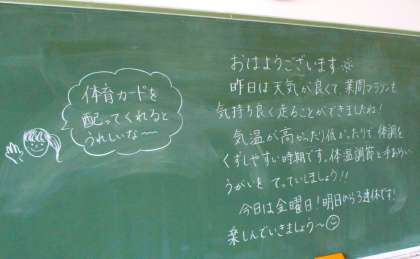 体育カードを
配ってくれると
うれしいな〜
おはようございます
昨日は天気が良くて、業間マラソンも
気持ち良く走ることができましたね!
気温が高かったり低かったりで体調を
くずしやすい時期です。体温調節と手あらい
うがいを てっていしましょう!!
今日は金曜日!明日から3連休です!
楽しんでいきましょう〜